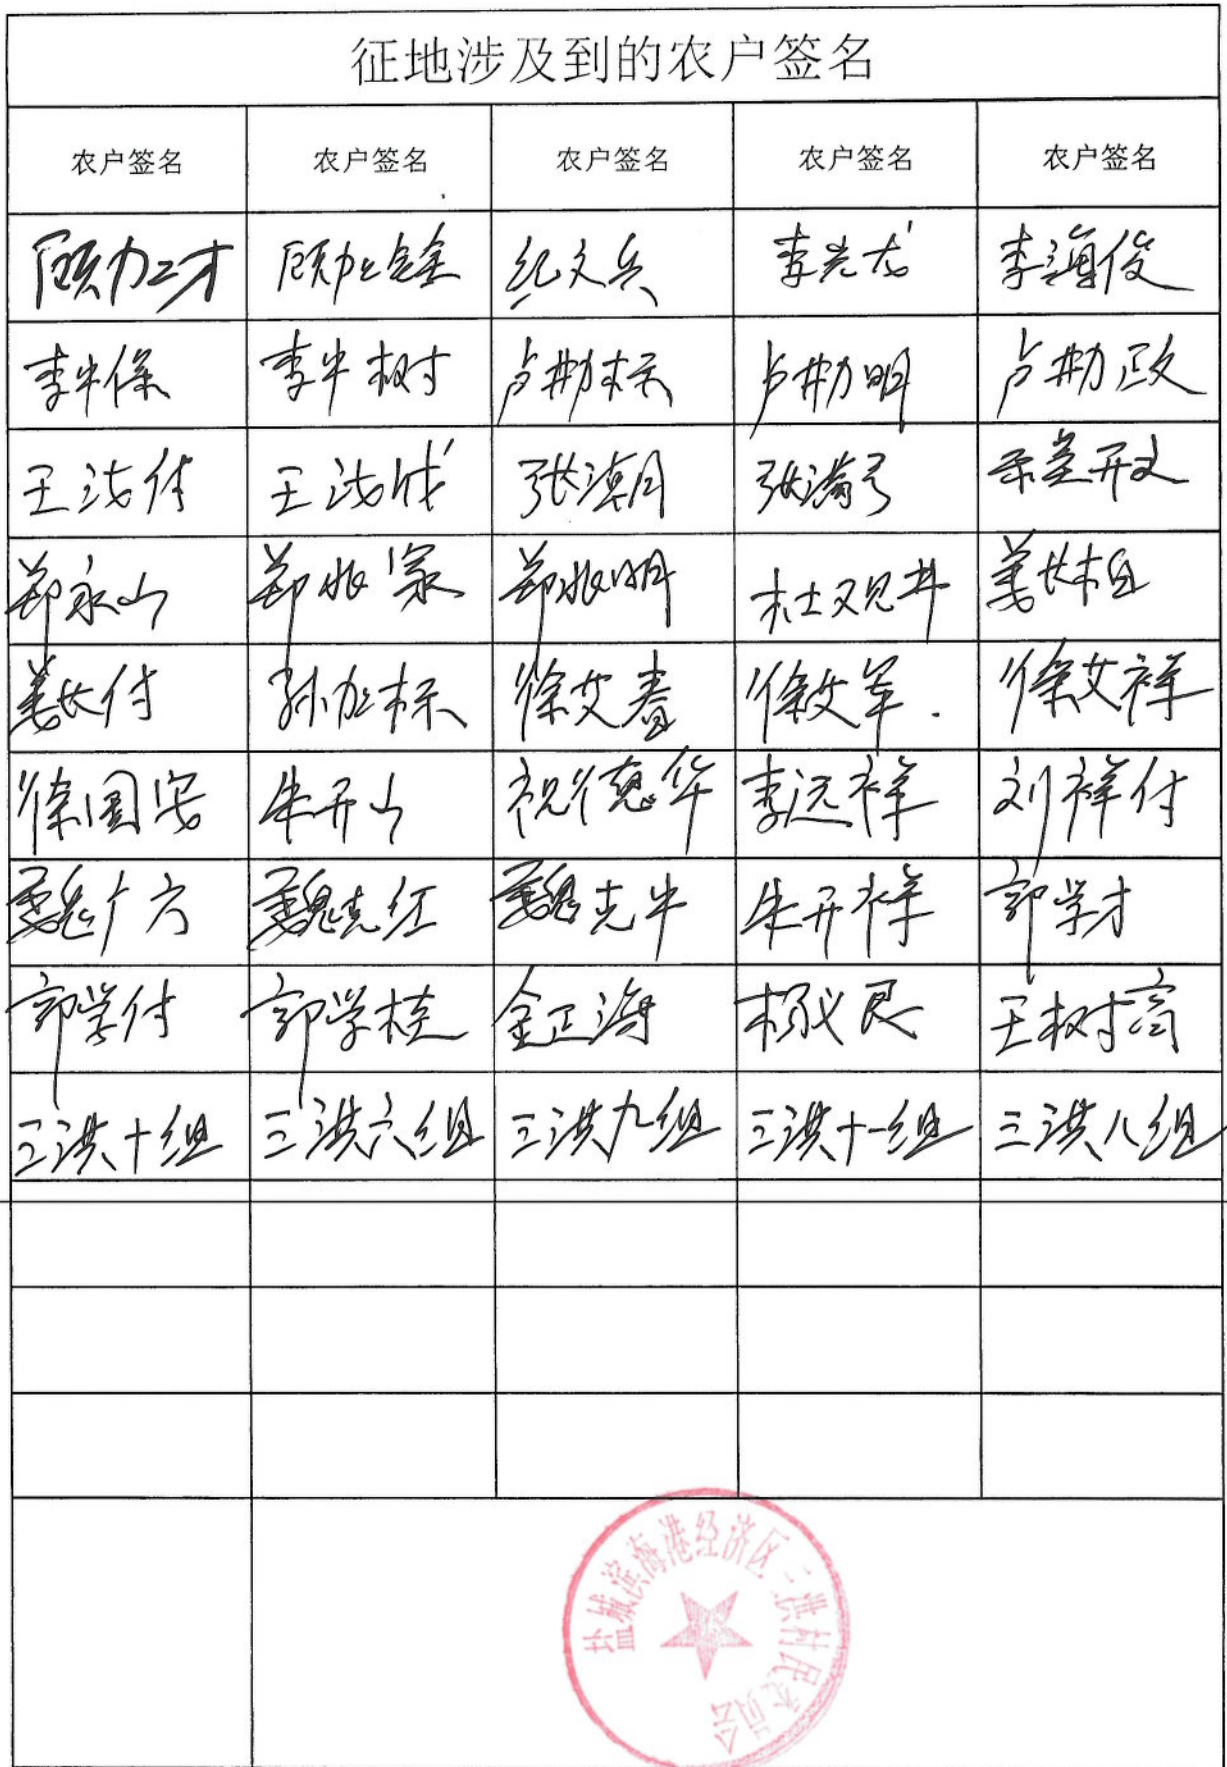 征地涉及到的农户签名
农户签名 农户签名 农户签名 农户签名 农户签名
顾加才 顾加金 纪文兵 李光龙 李海俊
李中保 李中树 卢荆标 卢荆明 卢荆政
王法付 王法成 张潮 张满 开文
郑永山 郑兆家 郑兆明 杜又见 姜长桓
姜长付 孙加标 徐艾春 徐艾军 徐艾祥
徐国安 朱开山 祝德华 李远祥 刘祥付
魏广方 魏克红 魏克中 朱开祥 郭学才
郭学付 郭学桂 金正海 杨义良 王树高
三洪十组 三洪六组 三洪九组 三洪十一组 三洪八组
盐城滨海港经济区三洪村民委员会